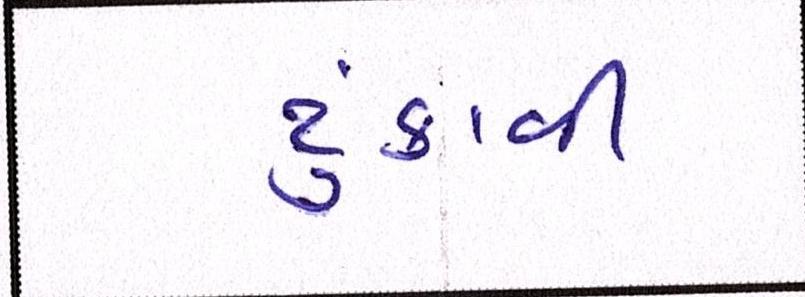 ટુંકાવી